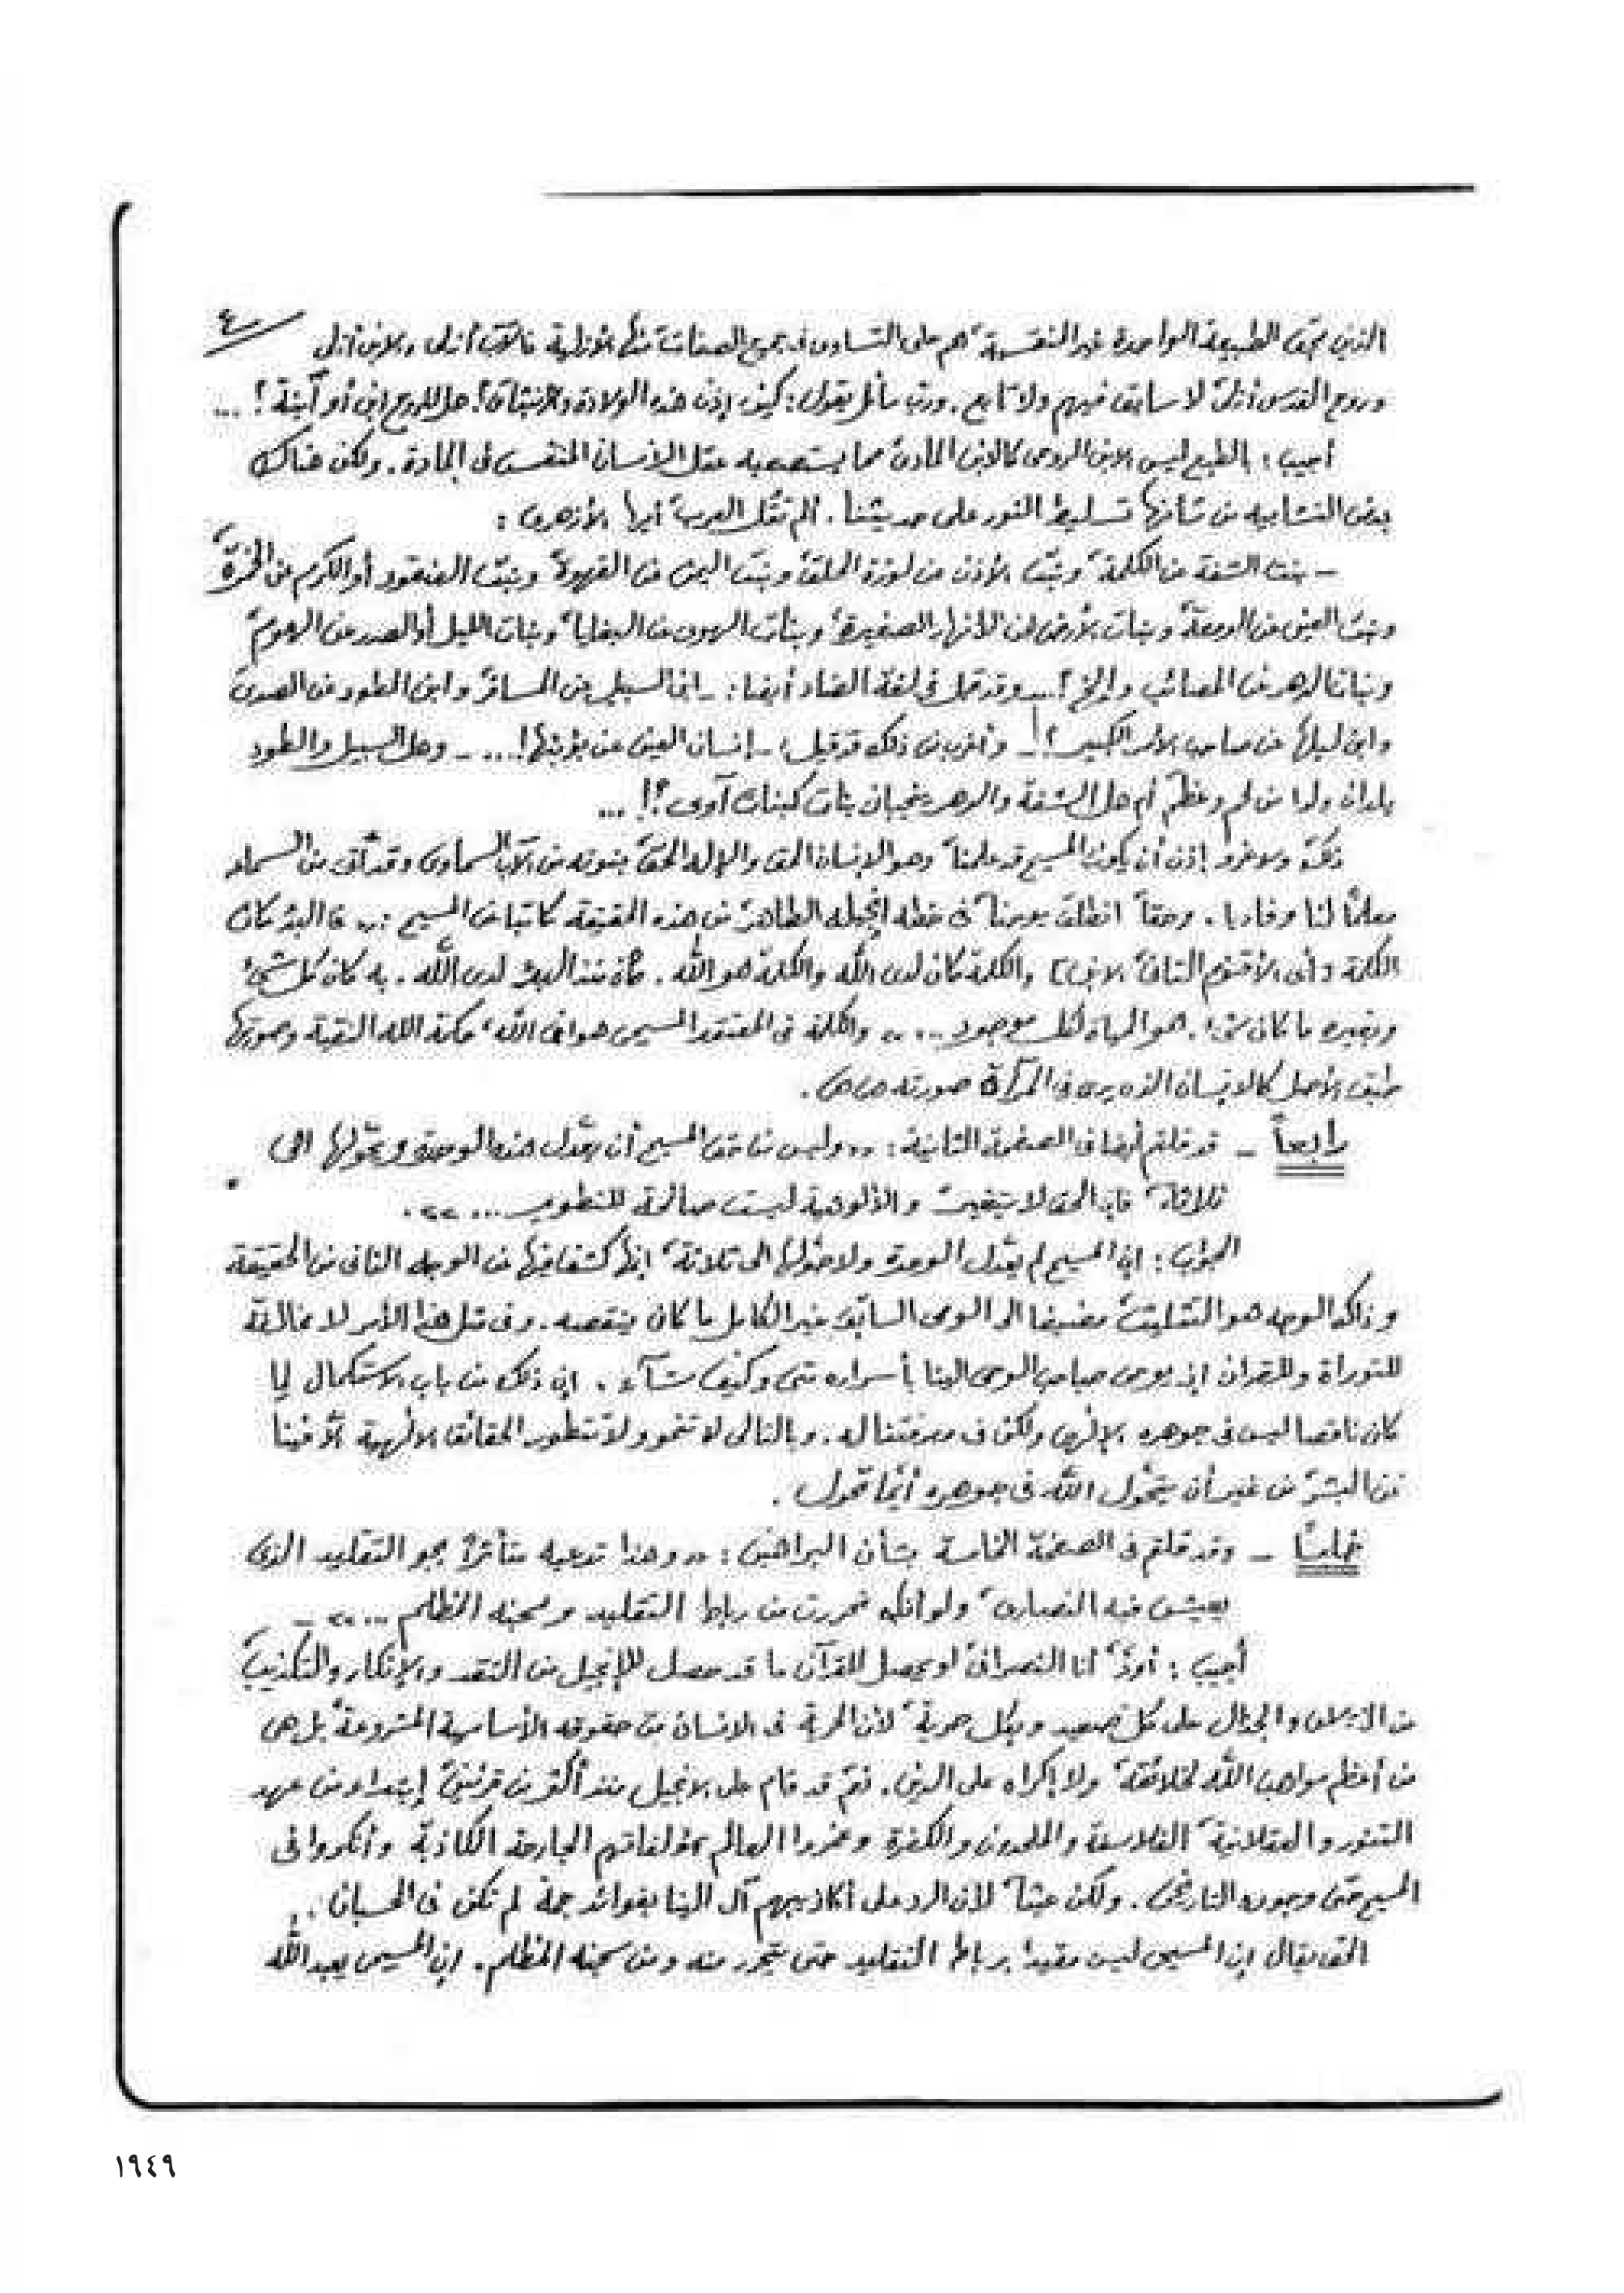 ٤
الذين تحق الطبيعة الواحدة غير المنقسمة، هم على التساوي في جميع الصفات منها الأزلية فالآب أزلي والابن أزلي
وروح القدس أزلي لا سابق فيهم ولا تابع. ورب سائل يقول: كيف إذن هذه الولادة والانبثاق؟ هل للروح ابن أو ابنة؟! ...
أجيب: بالطبع ليس الابن الروحي كالابن المادي مما يستصعبه عقل الإنسان المنغمس في المادة. ولكن هناك
بعض التشابيه من شأنها تسليط النور على حديثنا. ألم تقل العرب أيها الأزهري:
- بنت الشفة عن الكلمة، وبنت الأذن عن لوزة الحلق، وبنت اليمن عن القهوة، وبنت العنقود أو الكرم عن الخمرة
وبنت العين عن الدمعة، وبنات الأرض عن الأنهار الصغيرة، وبنات الهوى عن البغايا، وبنات الليل أو الصدر عن الهموم،
وبنات الدهر عن المصائب والخ؟ ... وقد قيل في لغة الضاد أيضا: - ابن السبيل عن المسافر، وابن الطود عن الصدى
وابن ليلها عن صاحب الأمر الكبير؟! - وأغرب من ذلك قد قيل: - إنسان العين عن بؤبئها! ... - وهل السبيل والطود
يلدان ولدا من لحم وعظم، أم هل الشفة والدهر ينجبان بنات كبنات آوى؟! ...
ذلك ولا غرو إذن أن يكون المسيح قد علمنا، وهو الإنسان الحق والإله الحق، بنوته من الآب السماوي وقد أتى من السماء
معلمًا لنا وفاديا. وحقاً انطلق يوحنا في خطه إنجيله الطاهر من هذه الحقيقة كاتبا عن المسيح: «في البدء كان
الكلمة [أي الأقنوم الثاني، الابن] والكلمة كان لدى الله والكلمة هو الله. كان منذ البدء لدى الله. به كان كل شيء
وبغيره ما كان شيء. هو الحياة لكل موجود ... » والكلمة في المعتقد المسيحي هو ابن الله، حكمة الله النقية وصورتها
طبق الأصل كالإنسان الذي يرى في المرآة صورته
رابعاً - قد قلتم أيضا في الصفحة الثانية: «وليس من حق المسيح أن يعدل هذه الوحدة ويحولها الى
ثلاثة، فإن الحق لا يتغير، والألوهية ليست صالحة للتطوير ... ».
الجواب: إن المسيح لم يعدل الوحدة ولا حولها الى ثلاثة، إنما كشف فيها عن الوجه الثاني من الحقيقة
وذلك الوجه هو التثليث، مضيفا الى الوحي السابق غير الكامل ما كان ينقصه. وفي مثل هذا الأمر لا مخالفة
للتوراة وللقرآن إن يوحي صاحب الوحي إلينا بأسراره متى وكيف شاء. إن ذلك من باب الاستكمال لما
كان ناقصا ليس في جوهره الإلهي ولكن في معرفتنا له. وبالتالي لا تنمو ولا تتطور الحقائق الإلهية إلّا فينا
نحن البشر من غير أن يتحول الله في جوهره أيما تحول.
خامسًا - وقد قلتم في الصفحة الخامسة بشأن البراهين: «وهذا تدعيه متأثرًا بجو التقليد الذي
يعيش فيه النصارى، ولو أنك تحررت من رباط التقليد وسجنه المظلم ... » -
أجيب: أودّ، أنا النصراني لو يحصل للقرآن ما قد حصل للإنجيل من النقد والإنكار والتكذيب
والجدال على كل صعيد وبكل حرية، لأن الحرية في الإنسان من حقوقه الأساسية المشروعة، بل هي
من أعظم مواهب الله لخلائقه، ولا إكراه على الدين. نعم قد قام على الإنجيل منذ أكثر من قرنين، إبتداء من عهد
التنور والعقلانية، الفلاسفة والملحدون والكفرة وغمروا العالم بمؤلفاتهم الجارحة الكاذبة وأنكروا في
المسيح حتى وجوده التاريخي. ولكن عبثاً، لأن الرد على أكاذيبهم آل إلينا بفوائد جمة لم تكن في الحسبان.
الحق يقال إن المسيحي ليس مقيدا برباط التقليد حتى يتحرر منه ومن سجنه المظلم. إن المسيحي يعبد الله
١٩٤٩